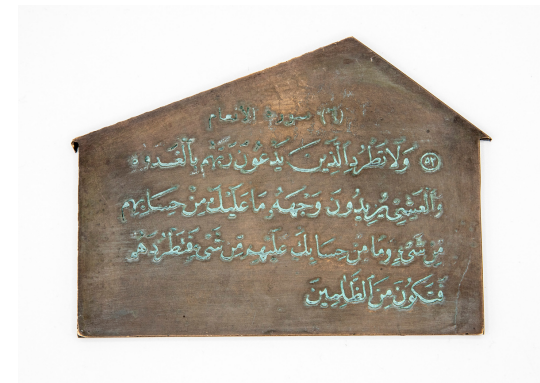 (٦) سورة الأنعام
﴿٥٢﴾ وَلَا تَطْرُدِ الَّذِينَ يَدْعُونَ رَبَّهُم بِالْغَدَوٰةِ
وَالْعَشِيِّ يُرِيدُونَ وَجْهَهُ مَا عَلَيْكَ مِنْ حِسَابِهِم
مِّن شَيْءٍ وَمَا مِنْ حِسَابِكَ عَلَيْهِم مِّن شَيْءٍ فَتَطْرُدَهُمْ
فَتَكُونَ مِنَ الظَّٰلِمِينَ